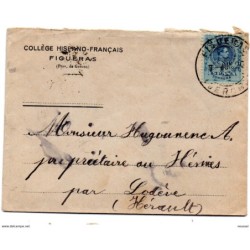 COLLÈGE HISPANO-FRANÇAIS
FIGUERAS
(Prov. de Gerona)
FIGUERAS
GERONA
Monsieur Hugounenc A.
propriétaire au Hèrmes
par Lodève
(Hérault)